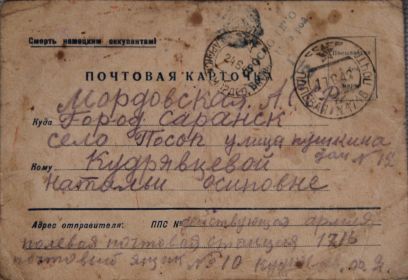 Смерть немецким оккупантам!
ПОЧТОВАЯ КАРТОЧКА
Мордовская А.С.С.Р.
Куда Город Саранск
село Посоп улица пушкина
дом N 12
Кому Кудрявцевой
Натальи осиповне
Адрес отправителя: ППС № действующая армия
полевая почтовая станция 1716
почтовый ящик № 10